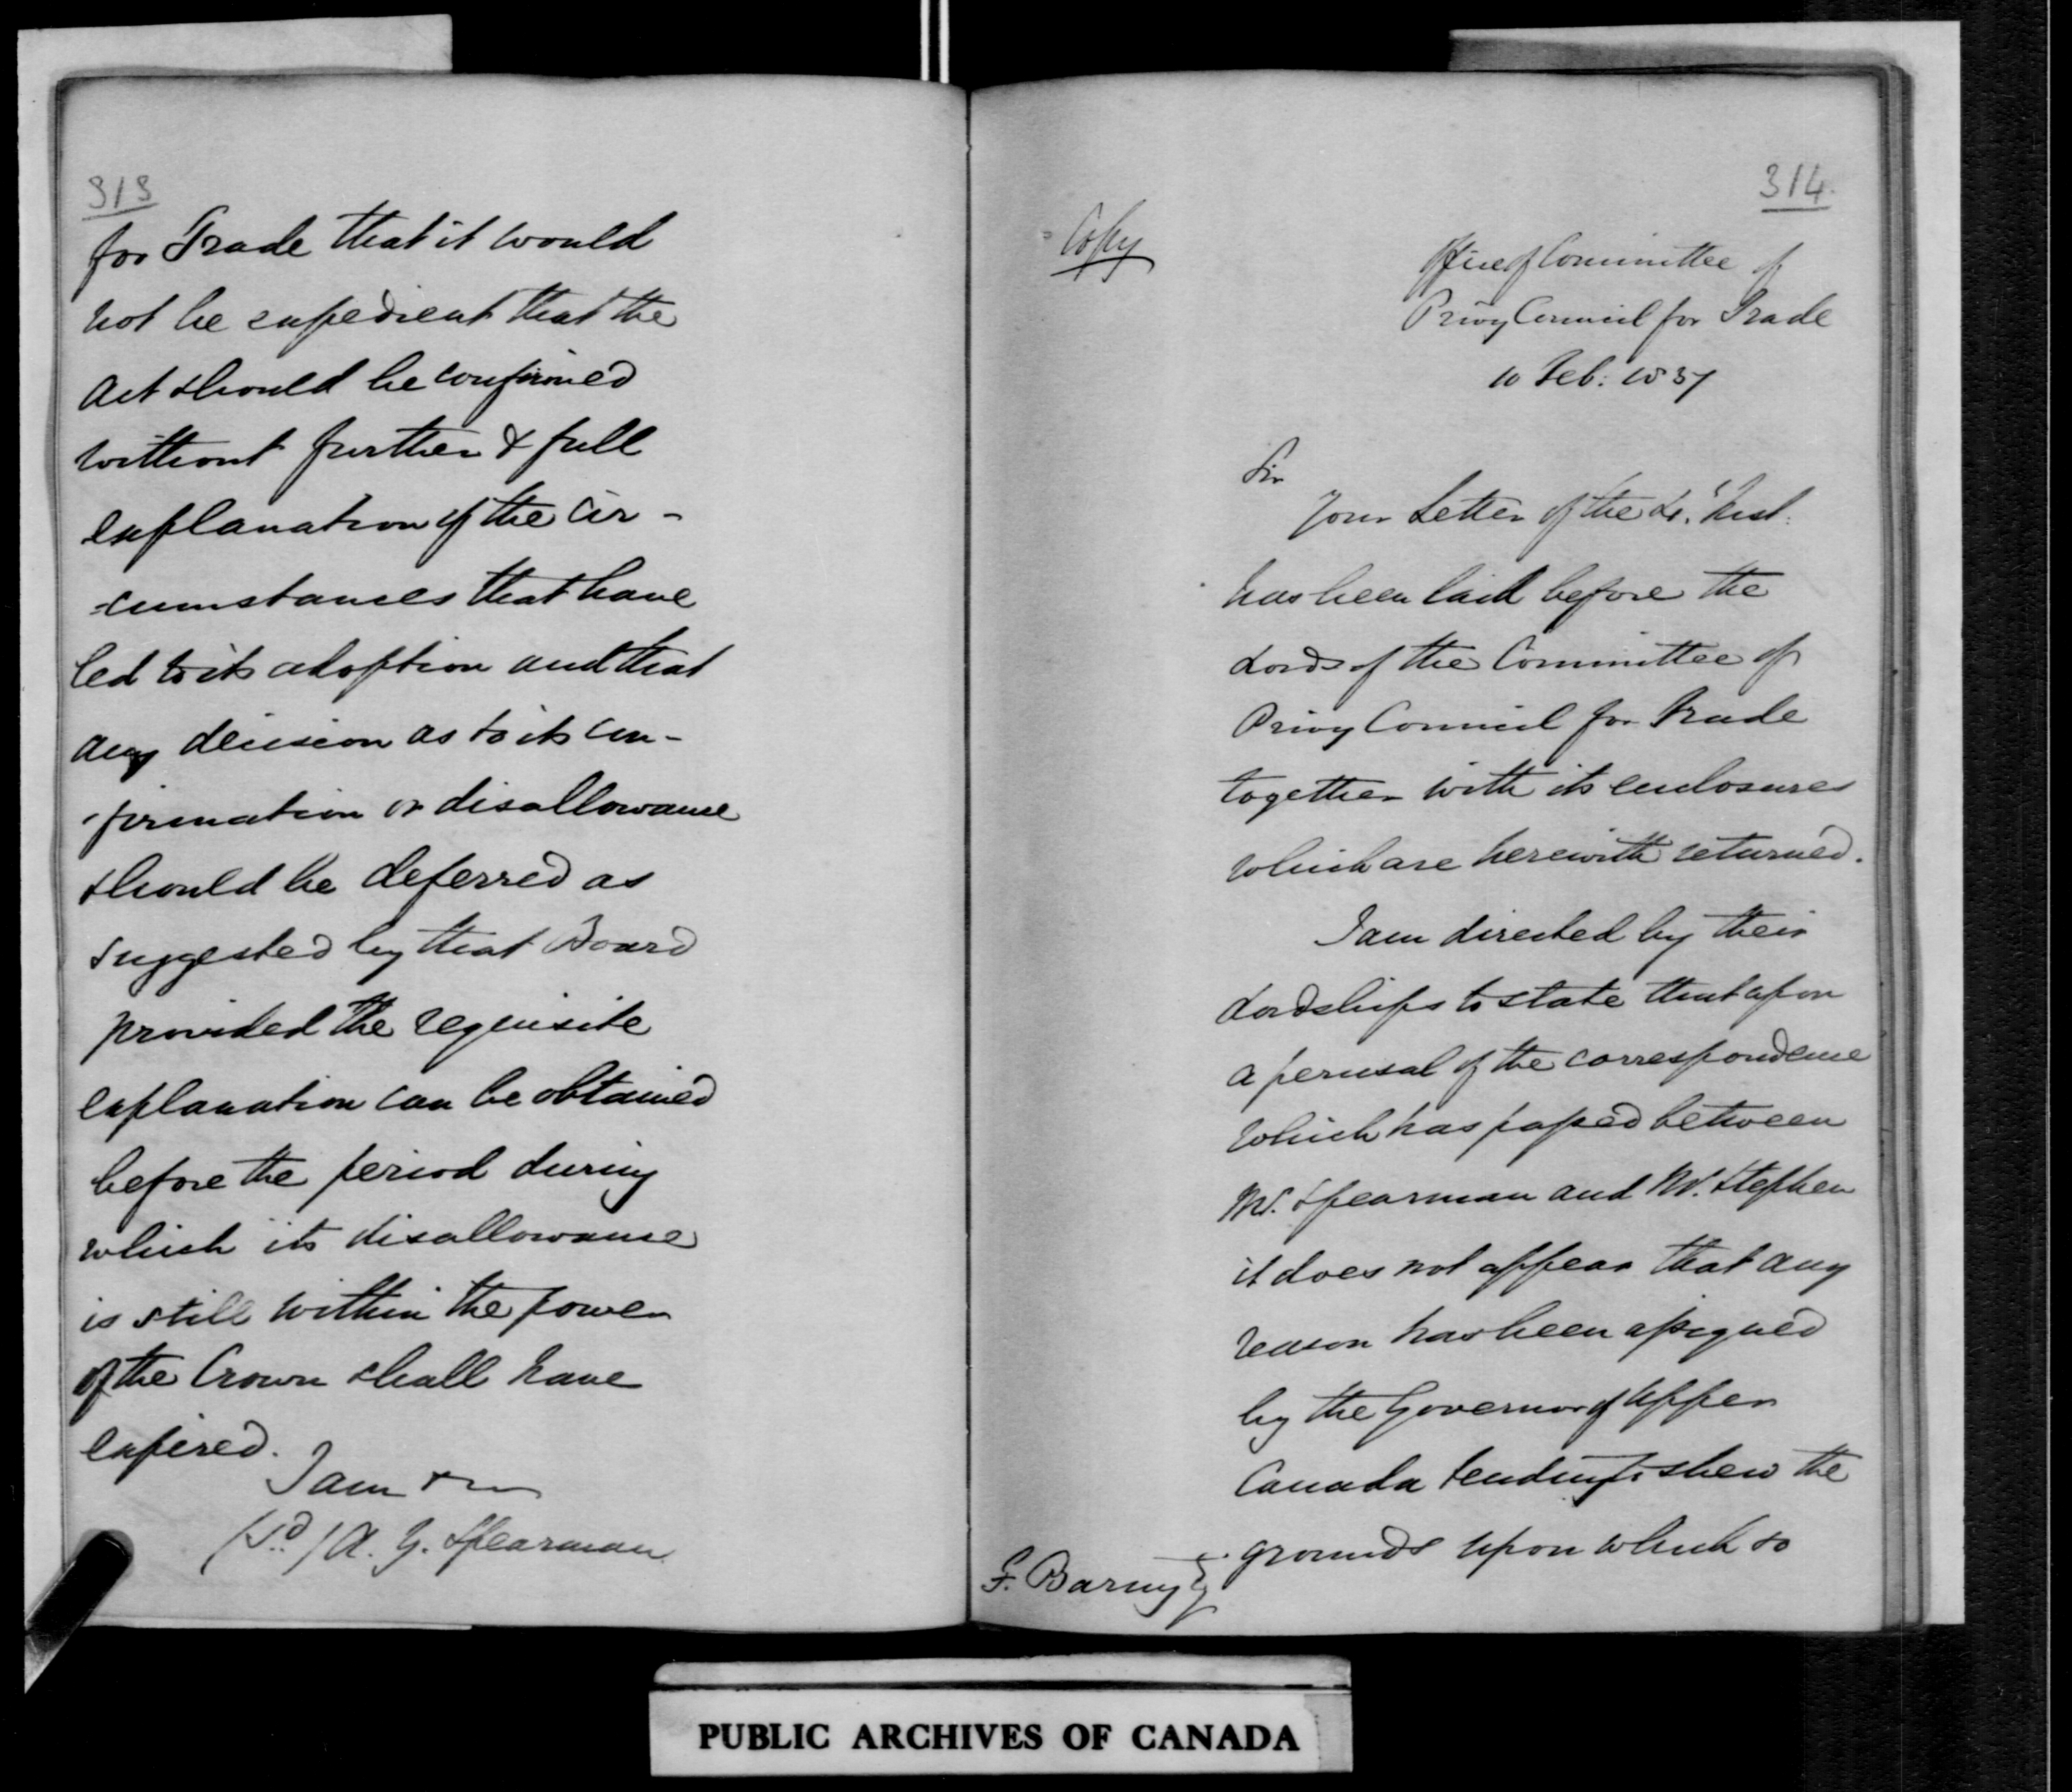 313
for Trade that it would
not be expedient that the
Act should be confirmed
without further & full
explanation of the cir-
-cumstances that have
led to its adoption and that
any decision as to its con-
-firmation or disallowance
should be deferred as
suggested by that Board
provided the requisite
explanation can be obtained
before the period during
which its disallowance
is still within the power
of the Crown shall have
expired.
I am &c
(Sd) A. Y. Spearman
314.
Copy
Office of Committee of
Privy Council for Trade
10 Feb: 1837
Sir
Your Letter of the Inst:
has been laid before the
Lords of the Committee of
Privy Council for Trade
together with its enclosures
which are herewith returned.
I am directed by their
Lordships to state that upon
a perusal of the correspondence
which has passed between
Mr. Spearman and Mr. Stephen
it does not appear that any
reason has been assigned
by the Governor of Upper
Canada tending to shew the
grounds upon which so
F. Baring
PUBLIC ARCHIVES OF CANADA